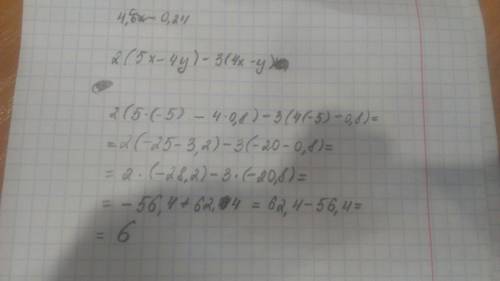 4,6x - 0,24
2(5x-4y)-3(4x-y)
2(5·(-5) - 4·0,8)-3(4(-5)-0,8)=
=2(-25-3,2)-3(-20-0,8)=
= 2·(-28,2)-3·(-20,8)=
= -56,4+62,4 = 62,4-56,4=
= 6